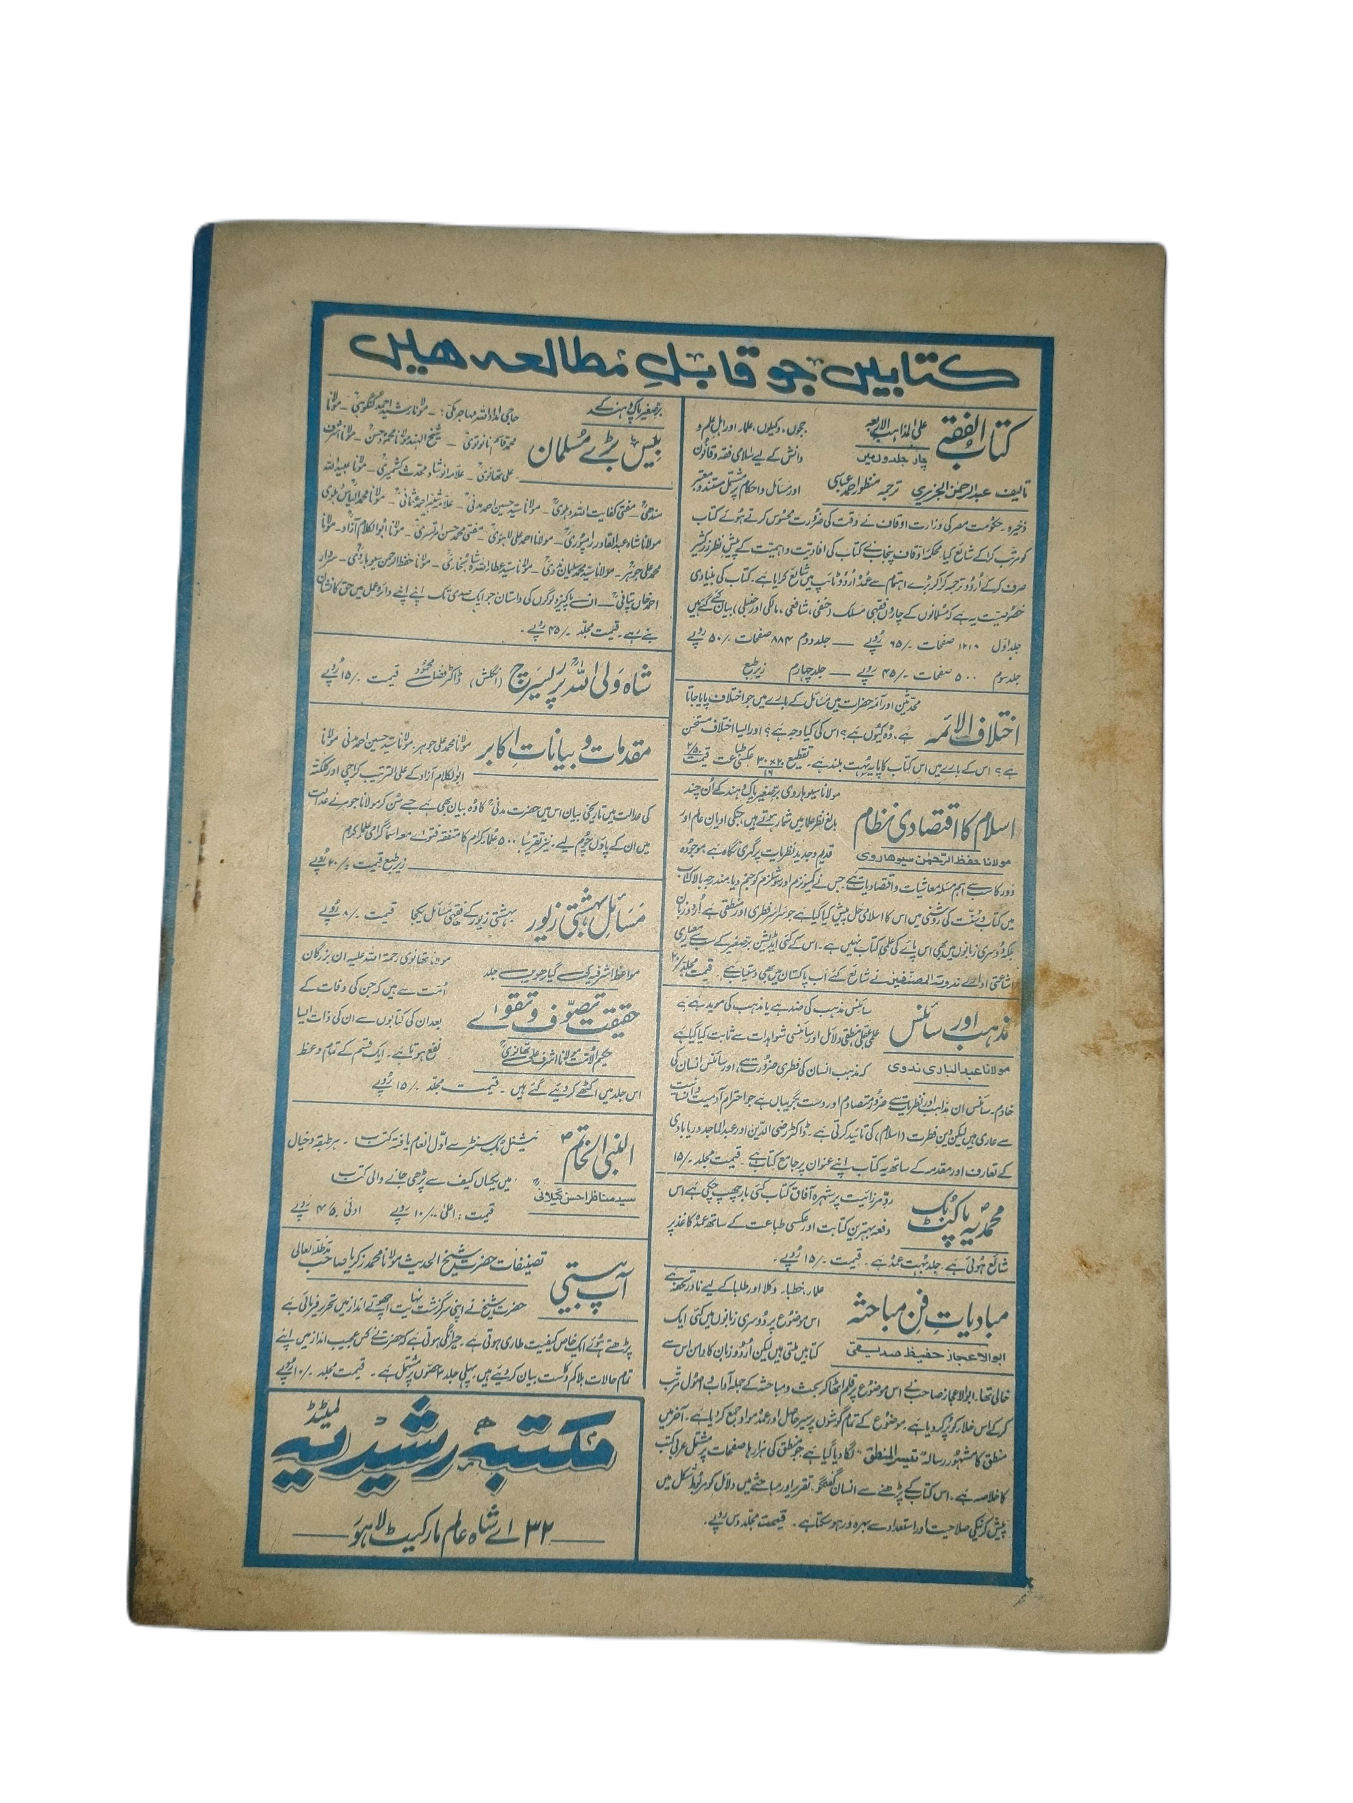 کتابیں جو قابلِ مطالعہ ھیں
کتاب الفقہ
علی المذاہب الاربعہ
چار جلدوں میں
ججوں، وکیلوں، علماء اور اہلِ علم و
دانش کے لیے اسلامی فقہ و قانون
تالیف عبدالرحمٰن الجزیری ترجمہ منظور احمد عباسی اور مسائل و احکام پر مشتمل مستند و معتبر
ذخیرہ۔ حکومت مصر کی وزارت اوقاف نے وقت کی ضرورت محسوس کرتے ہوئے کتاب
کو مرتب کرا کے شائع کیا۔ محکمہ اوقاف پنجاب نے کتاب کی افادیت و اہمیت کے پیش نظر زرِ کثیر
صرف کر کے اُردو ترجمہ کرا کر بڑے اہتمام سے عمدہ اُردو ٹائپ میں شائع کرایا ہے۔ کتاب کی بنیادی
خصوصیت یہ ہے کہ مسلمانوں کے چاروں فقہی مسلک (حنفی، شافعی، مالکی اور حنبلی) بیان کئے گئے ہیں
جلد اوّل ۱۲۱۰ صفحات ۶۵/۰ رُوپے — جلد دوم ۸۸۴ صفحات ۵۰/۰ روپے
جلد سوم ۵۰۰ صفحات ۴۵/۰ روپے — جلد چہارم زیر طبع
اختلاف الائمہ
محدثین اور آئمہ حضرات میں مسائل کے بارے میں جو اختلاف پایا جاتا
ہے۔ وہ کیوں ہے؟ اس کی کیا وجہ ہے؟ اور ایسا اختلاف مستحسن
ہے؟ اس کے بارے میں اس کتاب کا پایہ بہت بلند ہے۔ تقطیع ۲۰×۳۰/۱۶ عکسی طباعت قیمت ۲/۵۰
اسلام کا اقتصادی نظام
مولانا حفظ الرحمٰن سیوھاروی
مولانا سیوہاروی برصغیر پاک و ہند کے اُن چند
بالغ نظر علماء میں شمار ہوتے ہیں، جنکی ادیان عالم اور
قدیم و جدید نظریات پر گہری نگاہ ہے۔ موجودہ
دور کا سب سے اہم مسئلہ معاشیات و اقتصادیات ہے، جس نے کمیونزم اور سوشلزم کو جنم دیا۔ مندرجہ بالا کتاب
میں کتاب و سنّت کی روشنی میں اس کا اسلامی حل پیش کیا گیا ہے جو سراسر فطری اور منطقی ہے اُردو زبان
بلکہ دُوسری زبانوں میں بھی اس پائے کی علمی کتاب نہیں ہے۔ اس کے کئی ایڈیشن برصغیر کے سب سے معیاری
اشاعتی ادارے ندوۃ المصنفین نے شائع کئے اب پاکستان میں بھی دستیاب ہے۔ قیمت مجلد ۲۰/
مذہب اور سائنس
مولانا عبدالباری ندوی
سائنس مذہب کی ضد ہے یا مذہب کی موید ہے یہ
علمی عقلی منطقی دلائل اور سائنسی شواہدات سے ثابت کیا گیا ہے
کہ مذہب انسان کی فطری ضرورت ہے، اور سائنس انسان کی
خادم۔ سائنس ان مذاہب اور نظریات سے ضرور متصادم اور دست بگریباں ہے جو احترام آدمیت و انسانیت
سے عاری ہیں لیکن دین فطرت (اسلام) کی تائید کرتی ہے۔ ڈاکٹر رضی الدّین اور عبدالماجد دریابادی
کے تعارف اور مقدمہ کے ساتھ یہ کتاب اپنے عنوان پر جامع کتاب ہے۔ قیمت مجلد ۱۵/۰
محمدیہ پاکٹ بک
ردِّ مرزائیت پر شہرہ آفاق کتاب کئی بار چھپ چکی ہے اس
دفعہ بہترین کتابت اور عکسی طباعت کے ساتھ عمدہ کاغذ پر
شائع ہوئی ہے۔ جلد بہت عمدہ ہے۔ قیمت ۱۵/۰ رُوپے۔
مبادیاتِ فنِ مباحثہ
ابوالاعجاز حفیظ صدیقی
علماء، خطباء، وکلا اور طلبا کے لیے نادر تحفہ ہے
اس موضوع پر دُوسری زبانوں میں کئی ایک
کتابیں ملتی ہیں لیکن اُردو زبان کا دامن اس سے
خالی تھا۔ ابوالاعجاز صاحب نے اس موضوع پر قلم اٹھا کر بحث و مباحثہ کے جملہ آداب و اصول مرتب
کر کے اس خلاء کو پُر کر دیا ہے۔ موضوع کے تمام گوشوں پر سیر حاصل اور عمدہ مواد جمع کر دیا ہے۔ آخر میں
منطق کا مشہور رسالہ "تیسر المنطق" لگا دیا گیا ہے جو منطق کی ہزار ہا صفحات پر مشتمل عربی کتب
کا خلاصہ ہے۔ اس کتاب کے پڑھنے سے انسان گفتگو، تقریر اور مباحثے میں دلائل کو مربوط شکل میں
پیش کرنیکی صلاحیت اور استعداد سے بہرہ ور ہو سکتا ہے۔ قیمت مجلد دس روپے۔
برّصغیر پاک و ہند کے
بیس بڑے مُسلمان
حاجی امداد اللہ مہاجر مکیؒ ۔ مولانا رشید احمد گنگوہیؒ ۔ مولانا
محمد قاسم نانوتویؒ ۔ شیخ الہند مولانا محمود حسنؒ ۔ مولانا اشرف
علی تھانویؒ ۔ علامہ انور شاہ محدث کشمیریؒ ۔ مولانا عبیداللہ
سندھیؒ ۔ مفتی کفایت اللہ دہلویؒ ۔ مولانا سید حسین احمد مدنیؒ ۔ علامہ شبیر احمد عثمانیؒ ۔ مولانا محمد الیاس دہلوی
مولانا شاہ عبدالقادر رائے پوریؒ ۔ مولانا احمد علی لاہوریؒ ۔ مفتی محمد حسن امرتسریؒ ۔ مولانا ابوالکلام آزادؒ ۔ مولانا
محمد علی جوہرؒ ۔ مولانا سید محمد سلیمان ندویؒ ۔ مولانا سید عطا اللہ شاہ بخاریؒ ۔ مولانا حفظ الرحمٰن سیوہارویؒ ۔ سردار
احمد خاں پتافیؒ — ان پاکیزہ لوگوں کی داستان جو ایک صدی تک اپنے اپنے دائرہ عمل میں حق کا نشان
بنے رہے۔ قیمت مجلد ۴۵/۰ روپے۔
شاہ ولی اللہؒ پر ریسرچ (انگلش) ڈاکٹر فضل محمود قیمت ۱۵/۰ رُوپے
مقدمات و بیانات اکابر
مولانا محمد علی جوہر، مولانا سید حسین احمد مدنی، مولانا
ابوالکلام آزاد کے علی الترتیب کراچی اور کلکتہ
کی عدالت میں تاریخی بیان اس میں حضرت مدنیؒ کا وہ بیان بھی ہے جسے سُن کر مولانا جوہر نے عدالت
میں ان کے پاؤں چوم لیے۔ نیز تقریباً ۵۰۰ علماء کرام کا متفقہ فتویٰ معہ اسما گرامی علماء کرام
زیر طبع قیمت ۲۰/۰ روپے
مَسَائل بہشتی زیور بہشتی زیور کے فقہی مَسائل یکجا قیمت ۸/۰ رُوپے
مواعظ اشرفیہ کی گیارھویں جلد
حقیقت تصوّف و تقوے
حکیم الامّت مولانا اشرف علی تھانویؒ
مولانا تھانوی رحمۃ اللہ علیہ ان بزرگان
امت سے ہیں کہ جن کی وفات کے
بعد ان کی کتابوں سے ان کی ذات ایسا
نفع ہوتا ہے۔ ایک قسم کے تمام وعظ
اس جلد میں اکٹھے کر دیئے گئے ہیں۔ قیمت مجلد ۱۵/۰ رُوپے
النبی الخاتم
سید مناظر احسن گیلانیؒ
نیشنل بُک سنٹر سے اوّل انعام یافتہ کتاب۔ ہر طبقہ و خیال
میں یکساں کیف سے پڑھی جانے والی کتاب
قیمت: اعلیٰ ۱۰/۰۰ روپے ادنیٰ ۴/۵۰ رَوپے
آپ بیتی
تصنیفات حضرت شیخ الحدیث مولانا محمد زکریا صاحب مدظلہ العالی
حضرت شیخ نے اپنی سرگزشت نہایت اچھوتے انداز میں تحریر فرمائی ہے
پڑھتے ہُوئے ایک خاص کیفیت طاری ہوتی ہے۔ حیرانگی ہوتی ہے کہ حضرت نے کس عجیب انداز میں اپنے
تمام حالات بلا کم و کاست بیان کر دیئے ہیں۔ پہلی جلد ۲ حصّوں پر مشتمل ہے۔ قیمت مجلد ۱۰/۰ روپے
مکتبہ رشیدیہ لمیٹڈ
۳۲ اے شاہ عالم مارکیٹ لاہور